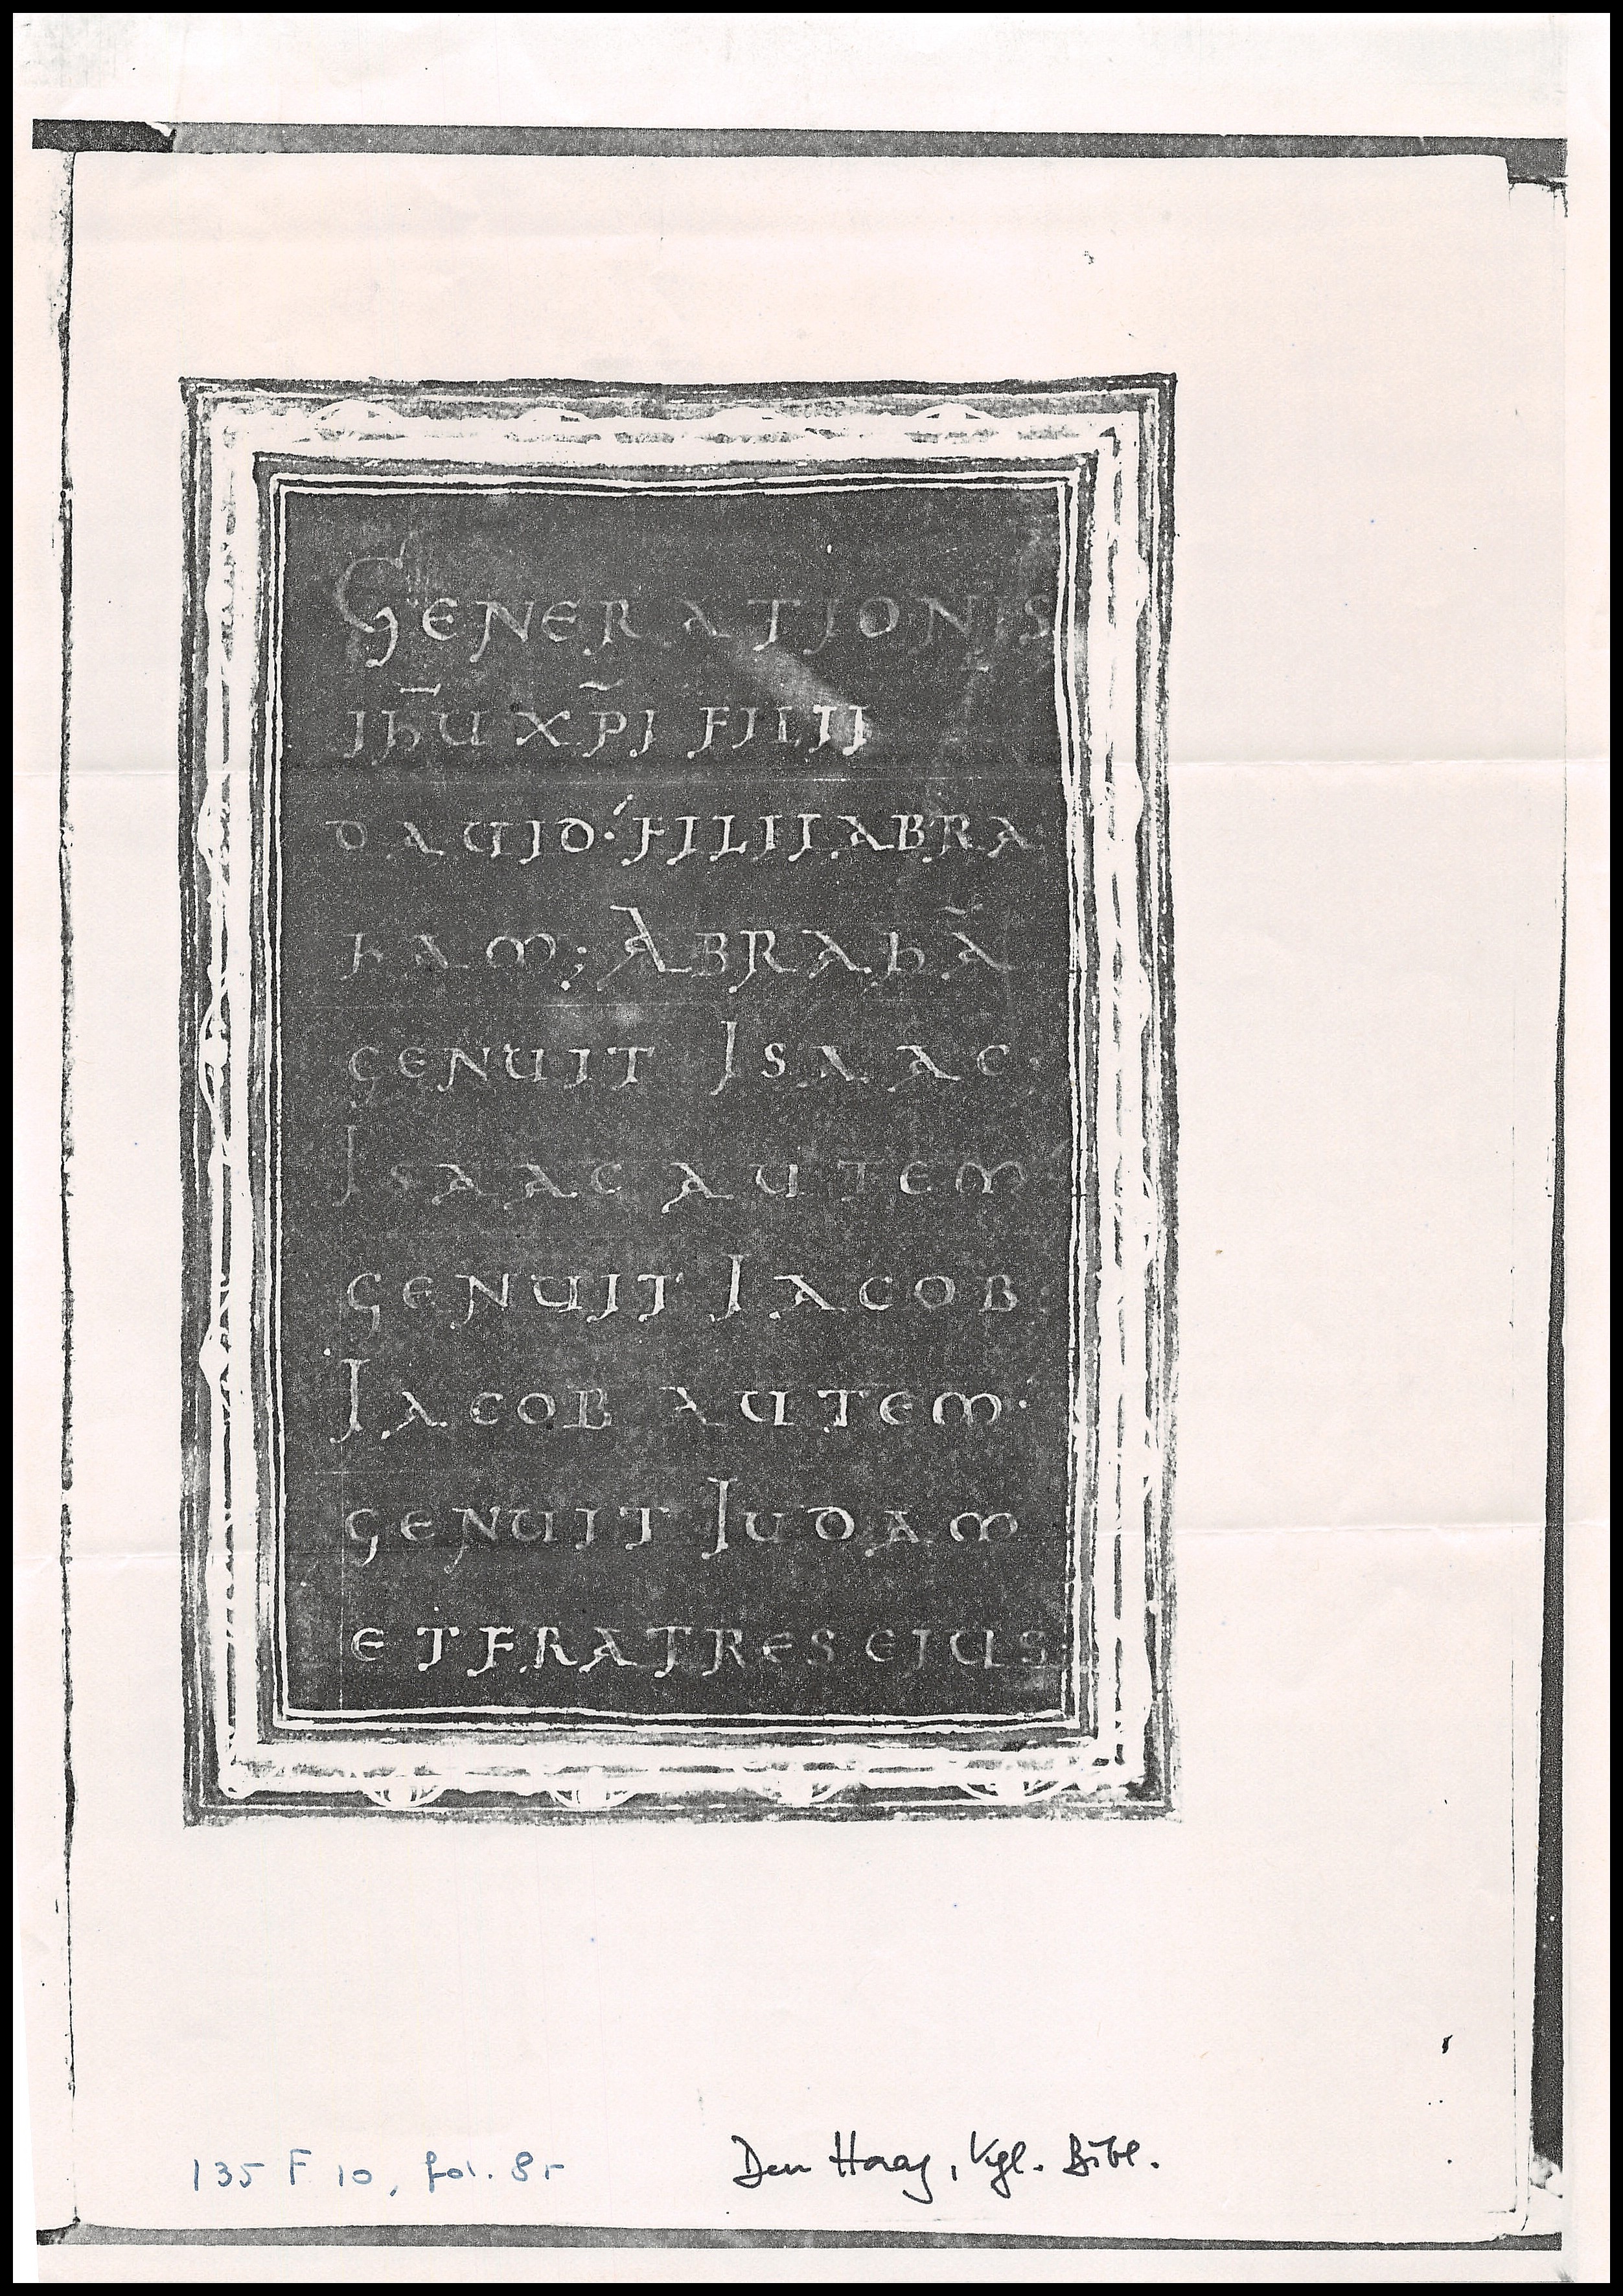 GENERATIONIS
IhU XPI FILII
DAUID· FILII ABRA
hAM; ABRAhÃ
GENUIT ISAAC·
ISAAC AUTEM
GENUIT IACOB·
IACOB AUTEM·
GENUIT IUDAM
ET FRATRES EIUS·
135 F 10, fol. 8r
Den Haag, Kgl. Bibl.